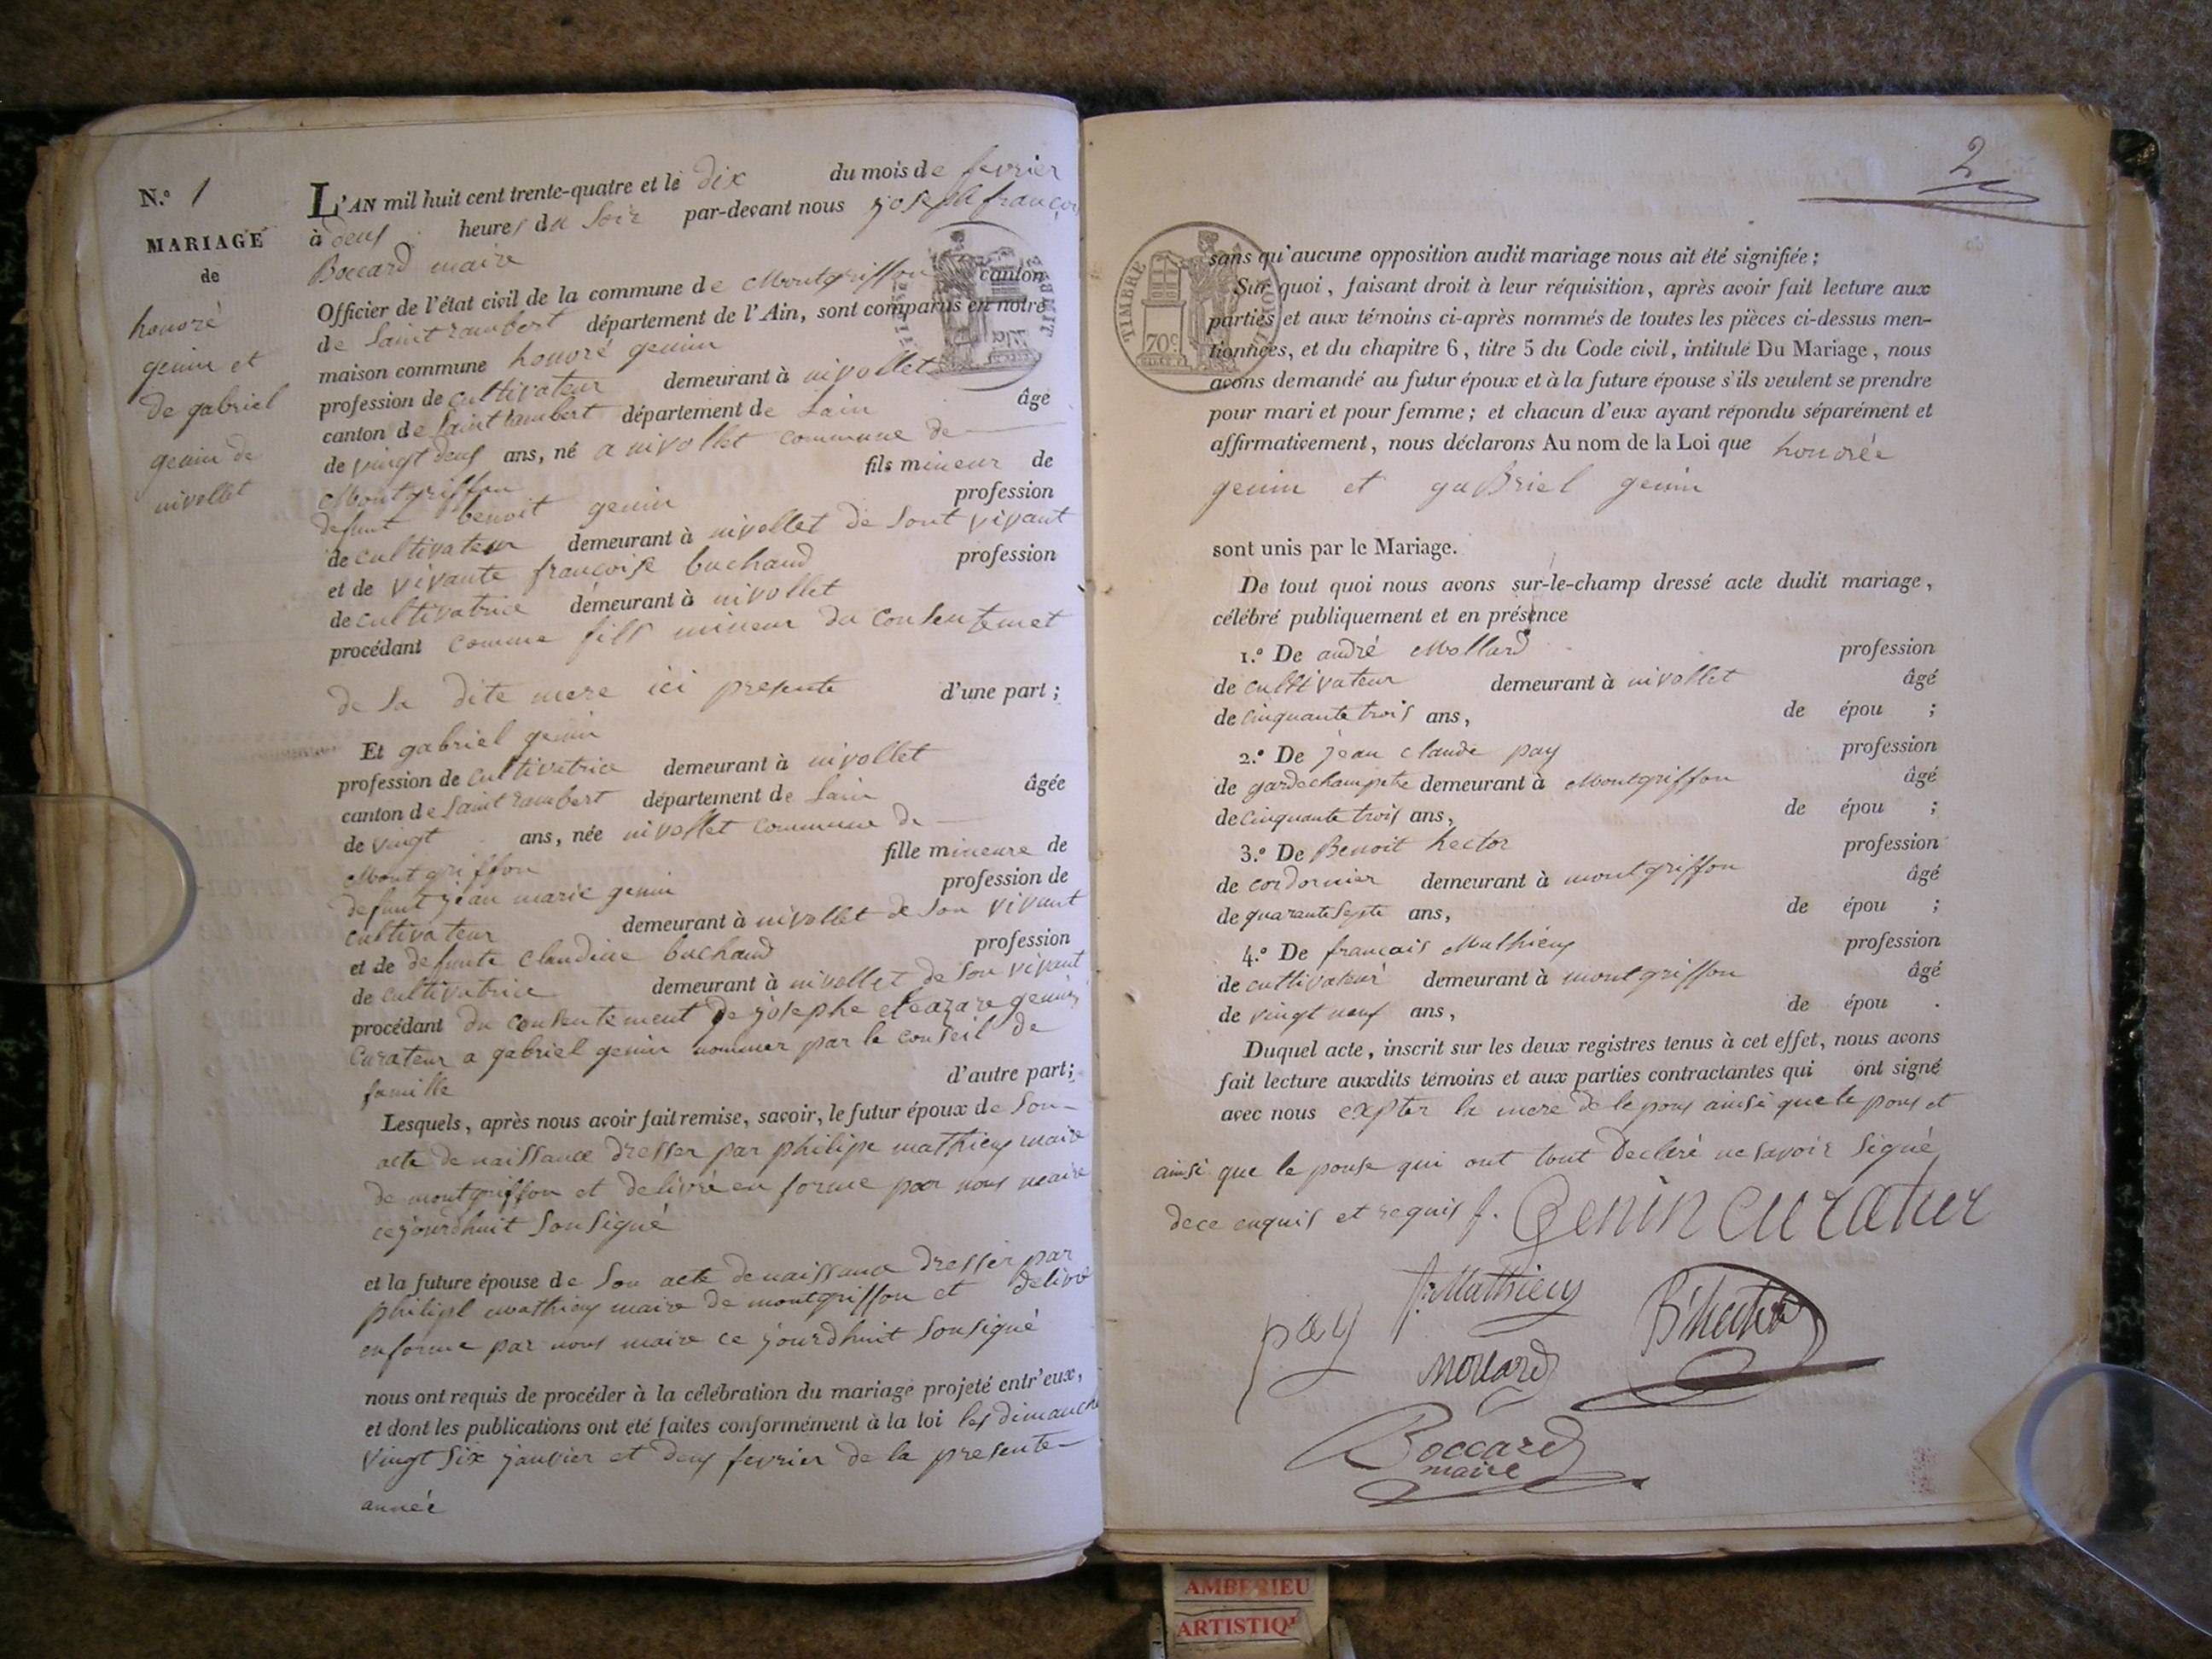 N.º 1
MARIAGE
de
honoré
genin et
de gabriel
genin de
nivollet
L'AN mil huit cent trente-quatre et le dix du mois de fevrier
à deux heures du soir par-devant nous joseph françois
Boccard maire
Officier de l'état civil de la commune de Montgriffon canton
de Saint rambert département de l'Ain, sont comparus en notre
maison commune honoré genin
profession de cultivateur demeurant à nivollet
canton de Saint rambert département de Lain âgé
de vingt deux ans, né a nivollet commune de
Montgriffon fils mineur de
defunt benoit genin profession
de cultivateur demeurant à nivollet de sont vivant
et de vivante françoise buchaud profession
de cultivatrice demeurant à nivollet
procédant comme fils mineur du consentemet
de sa dite mere ici presente d'une part;
Et gabriel genin
profession de cultivatrice demeurant à nivollet
canton de Saint rambert département de Lain âgée
de vingt ans, née nivollet commune de
Montgriffon fille mineure de
defunt jean marie genin profession de
cultivateur demeurant à nivollet de son vivant
et de defunte claudine buchaud profession
de cultivatrice demeurant à nivollet de son vivant
procédant du consentement de josephe eleazare genin
curateur a gabriel genin nommer par le conseil de
famille d'autre part;
Lesquels, après nous avoir fait remise, savoir, le futur époux de son
acte de naissance dresser par philipe mathieux maire
de montgriffon et delivré en forme par nous maire
cejourdhuit sousigné
et la future épouse de son acte de naissance dresser par
philipe mathieux maire de montgriffon et delivré
en forme par nous maire ce jourdhuit sousigné
nous ont requis de procéder à la célébration du mariage projeté entr'eux,
et dont les publications ont été faites conformément à la loi les dimanche
vingt six janvier et deux fevrier de la presente
année
2
TIMBRE ROYAL
70c
sans qu'aucune opposition audit mariage nous ait été signifiée;
Sur quoi, faisant droit à leur réquisition, après avoir fait lecture aux
parties et aux témoins ci-après nommés de toutes les pièces ci-dessus men-
tionnées, et du chapitre 6, titre 5 du Code civil, intitulé Du Mariage, nous
avons demandé au futur époux et à la future épouse s'ils veulent se prendre
pour mari et pour femme; et chacun d'eux ayant répondu séparément et
affirmativement, nous déclarons Au nom de la Loi que honorée
genin et gabriel genin
sont unis par le Mariage.
De tout quoi nous avons sur-le-champ dressé acte dudit mariage,
célébré publiquement et en présence
1.º De andré Mollard profession
de cultivateur demeurant à nivollet âgé
de cinquante trois ans, de épou ;
2.º De jean claude pay profession
de garde champetre demeurant à Montgriffon âgé
de cinquante trois ans, de épou ;
3.º De Benoit hector profession
de cordornier demeurant à montgriffon âgé
de quarante septe ans, de épou ;
4.º De français Mathieux profession
de cultivateur demeurant à montgriffon âgé
de vingt neuf ans, de épou .
Duquel acte, inscrit sur les deux registres tenus à cet effet, nous avons
fait lecture auxdits témoins et aux parties contractantes qui ont signé
avec nous expter la mere de lepoux ainsi que le poux et
ainsi que le pouse qui ont tout declaré ne savoir signé
de ce enquis et requis f. Genin curateur
f. Mathieux
pay B. hector
Mollard
Boccard
maire
AMBERIEU
ARTISTIQ